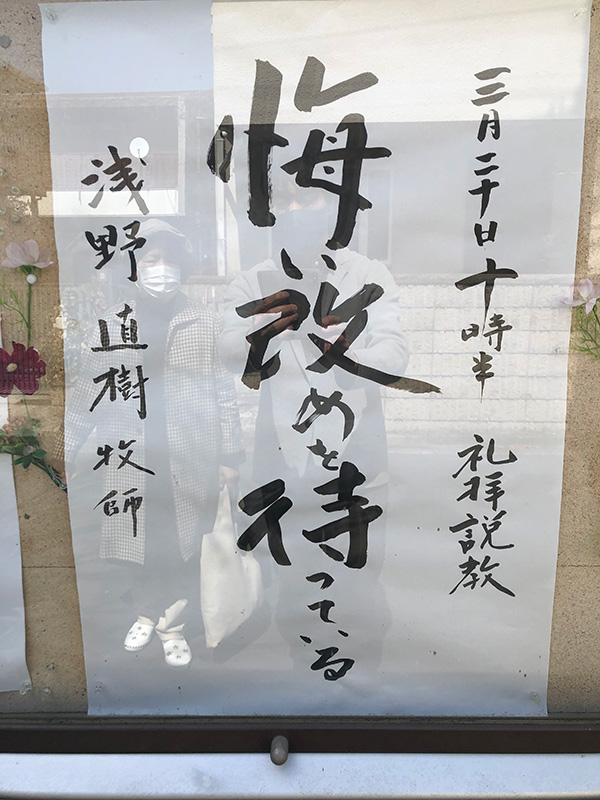 三月二十日 十時半 礼拝説教
悔い改めを待っている
浅野直樹 牧師